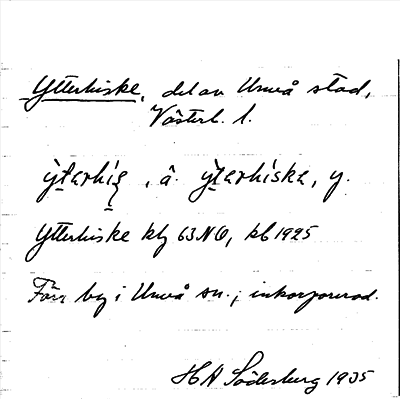 Ytterhiske, del av Umeå stad,
Västerb. l.
ỳtərhiʂ, â. ỳtərhiska, y.
Ytterhiske klg 63 NO, kb 1925
Förr by i Umeå sn.; inkorporerad.
HA Söderberg 1935